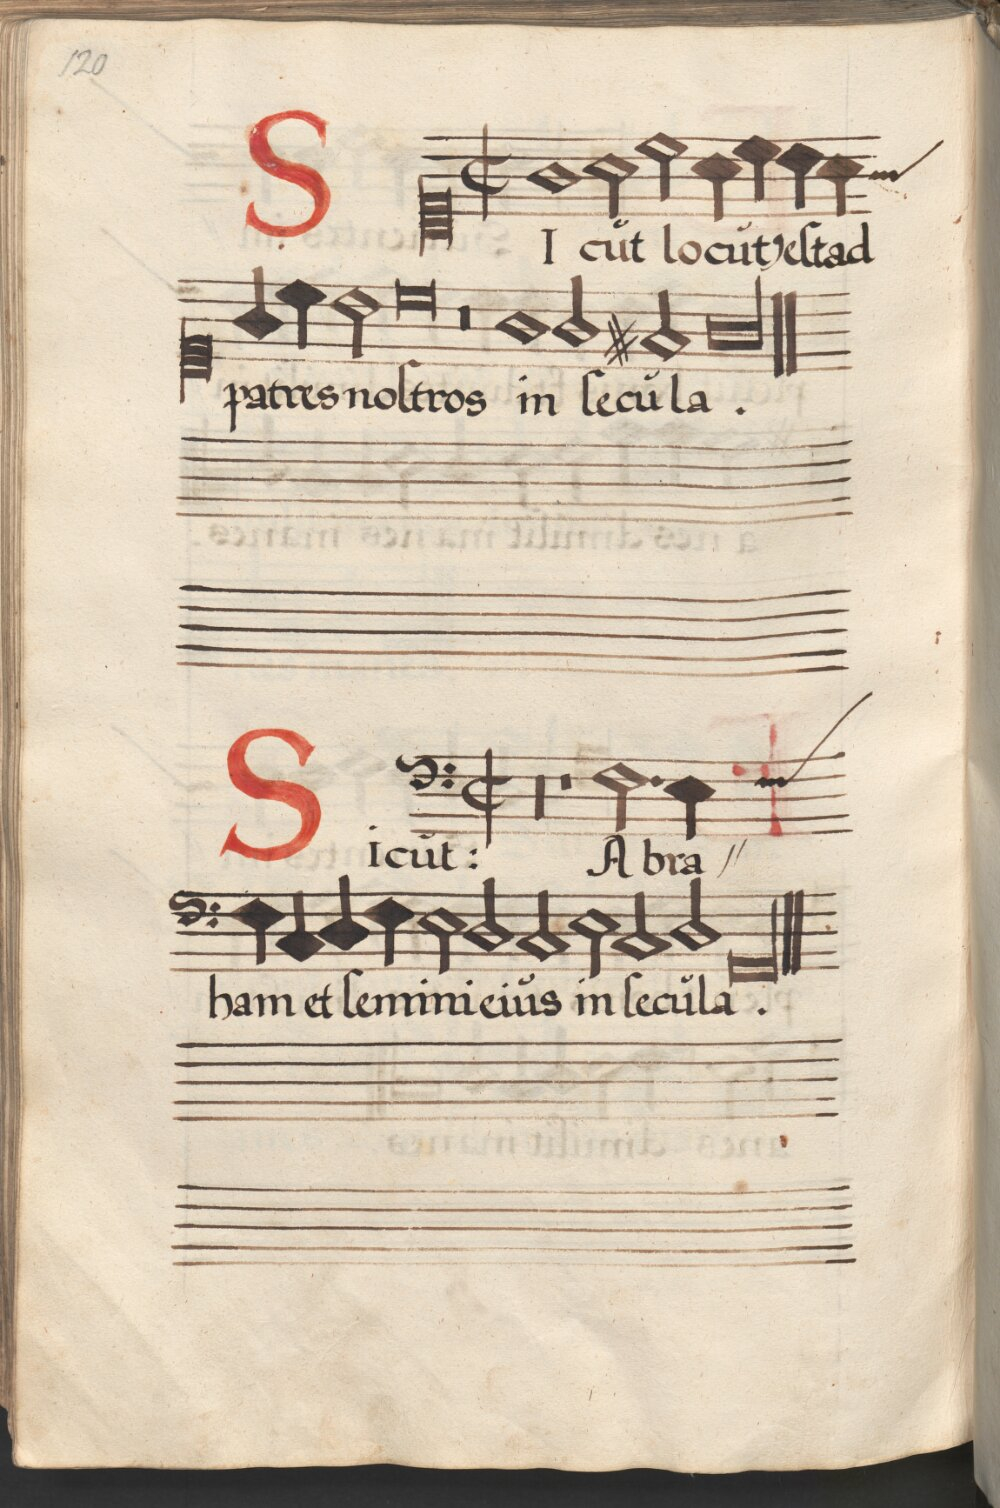 120
SI cut locut9 eſt ad
patres noſtros in ſecula .
Sicut : Abra //
ham et ſemini eius in ſecula .